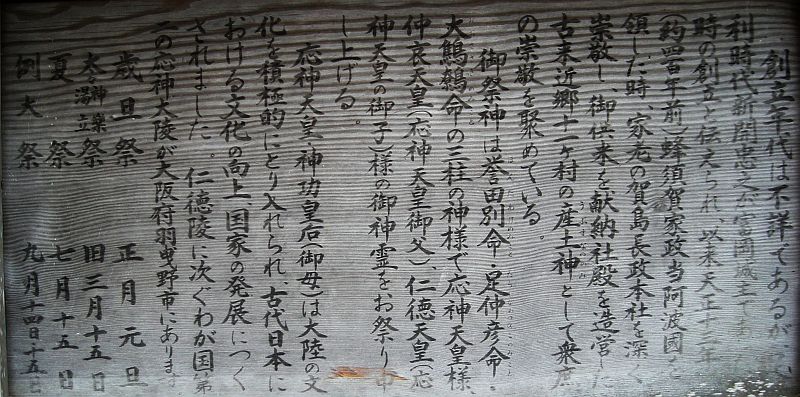 創立年代は不詳であるが、足
利時代新開忠之が富岡城主であ
時の創立と伝えられ、以来天正十三年
(約四百年前)蜂須賀家政当阿波国を
領した時、家老の賀島長政本社を深く
崇敬し、御供米を献納社殿を造営した
古来近郷十一ヶ村の産土神として衆庶
の崇敬を聚めている。
御祭神は誉田別命・足仲彦命・
大鷦鷯命の三柱の神様で応神天皇様、
仲哀天皇(応神天皇御父)、仁徳天皇(応
神天皇の御子)様の御神霊をお祭り申
し上げる。
応神天皇・神功皇后(御母)は大陸の文
化を積極的にとり入れられ、古代日本に
おける文化の向上、国家の発展につく
されました。仁徳陵に次ぐわが国第
二の応神大陵が大阪府羽曳野市にあります
歳旦祭 正月元旦
太々神楽湯立祭 旧三月十五日
夏祭 七月十五日
例大祭 九月十四日十五日